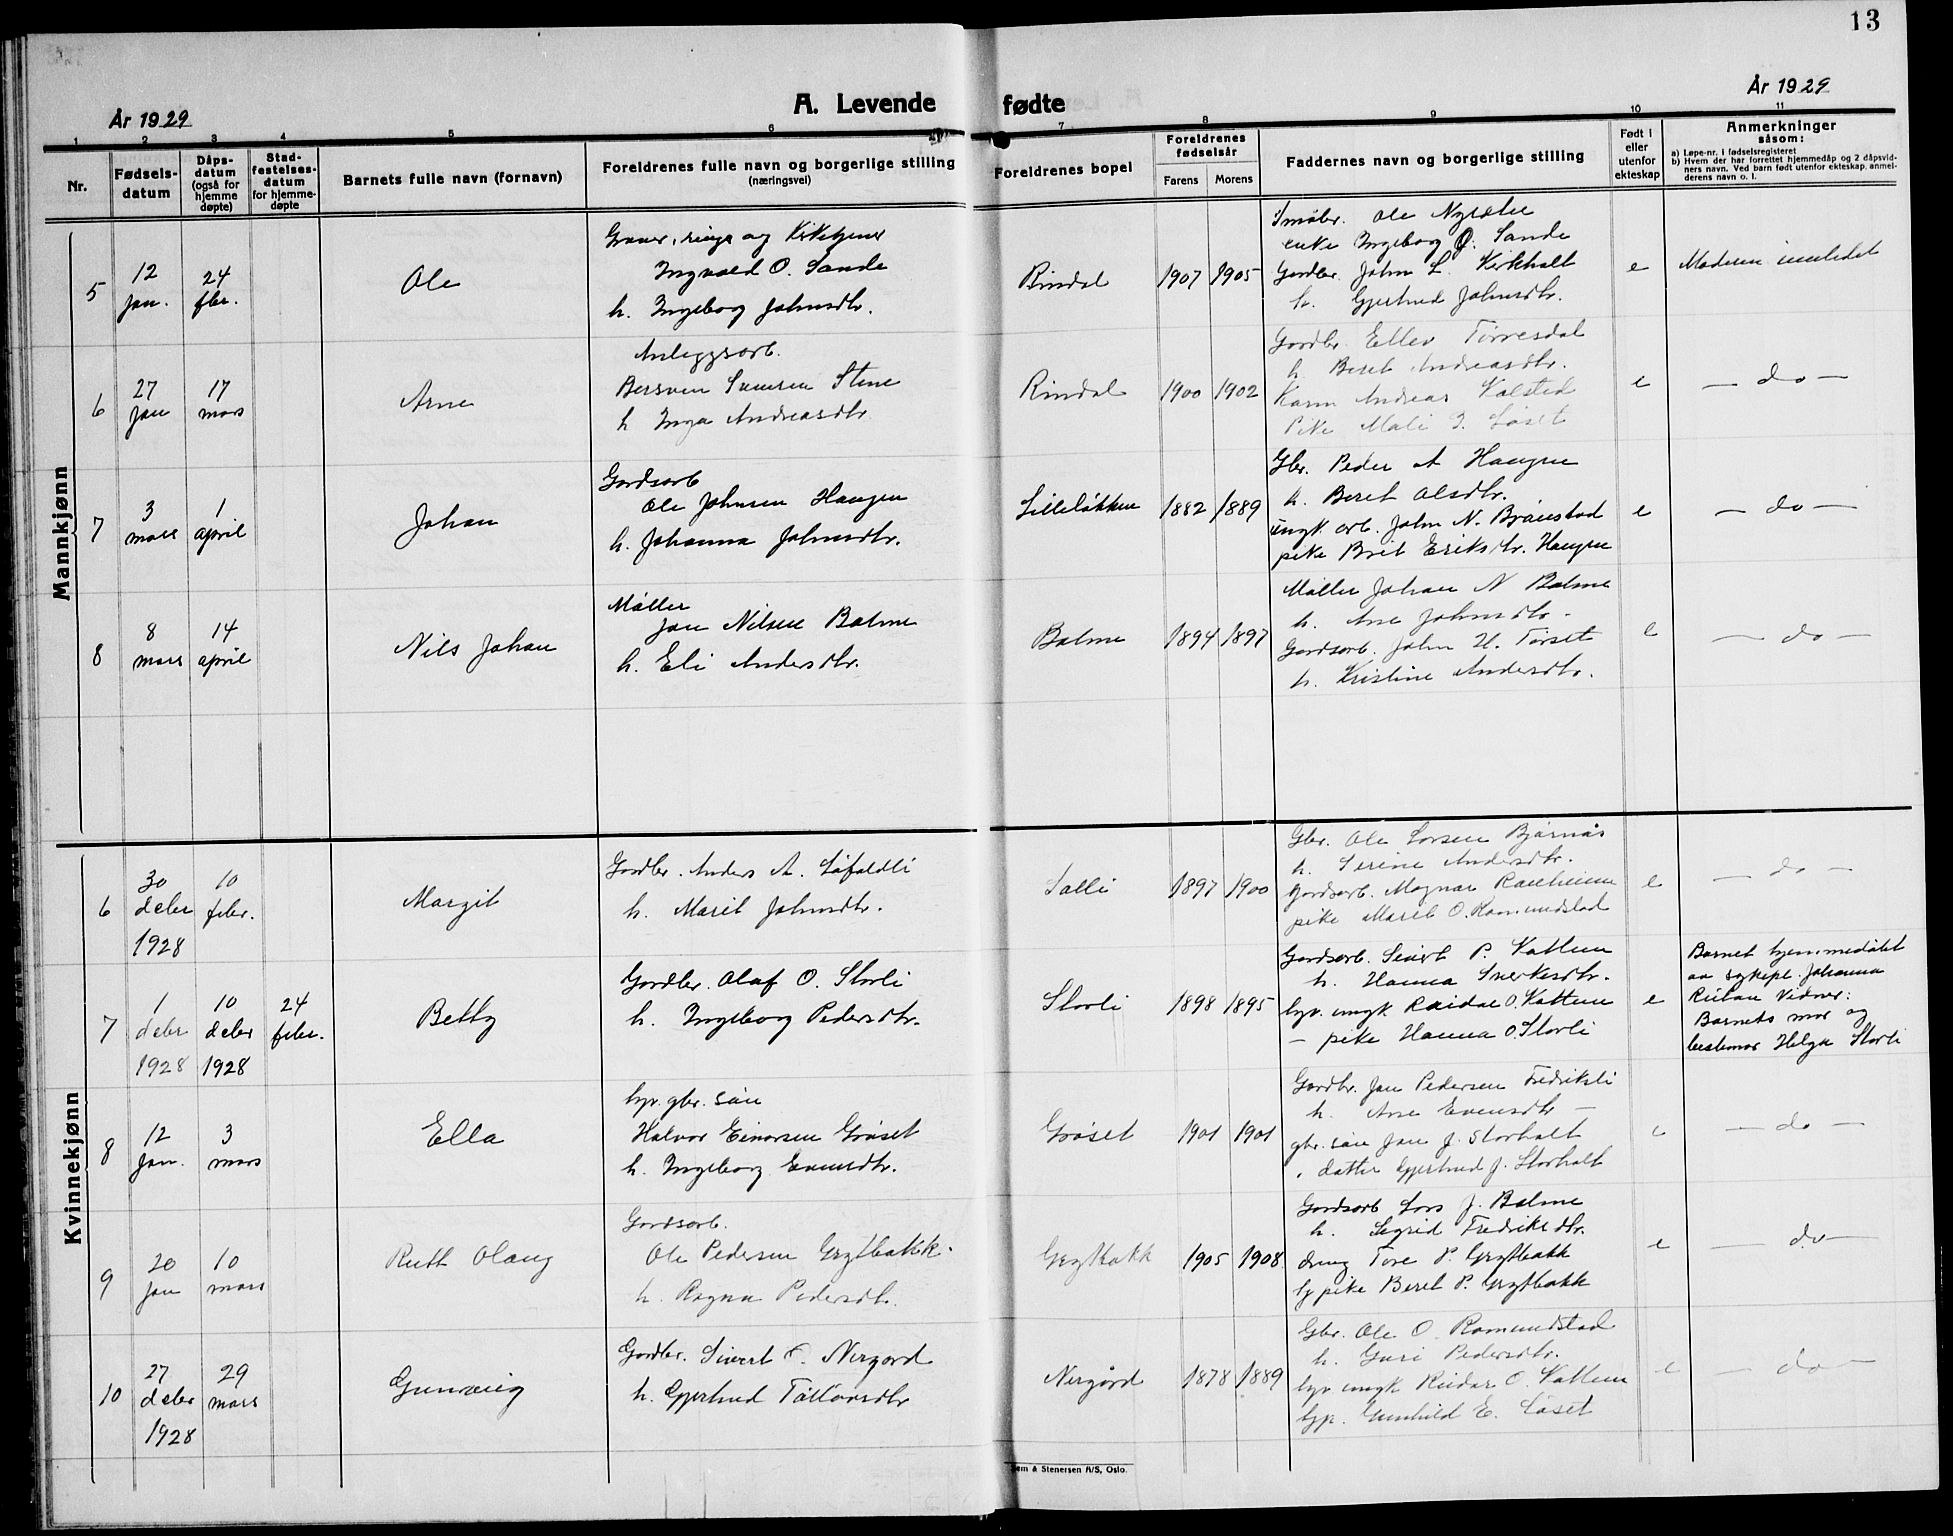 13
År 1929
A. Levende fødte
År 1929
1 2 3 4 5 6 7 8 9 10 11
Nr.
Fødsels-
datum
Dåps-
datum
(også for
hjemme
døpte)
Stad-
festelses-
datum
for hjemme-
døpte
Barnets fulle navn (fornavn)
Foreldrenes fulle navn og borgerlige stilling
(næringsvei)
Foreldrenes bopel
Foreldrenes
fødselsår
Farens Morens
Faddernes navn og borgerlige stilling
Født i
eller
utenfor
ekteskap
Anmerkninger
såsom:
a) Løpe-nr. i fødselsregisteret
b) Hvem der har forrettet hjemmedåp og 2 dåpsvid-
ners navn. Ved barn født utenfor ekteskap, anmel-
derens navn o. l.
Mannkjønn
5
12
jan.
24
fbr.
Ole
og
Ingvald O. Sande
h. Ingeborg Johnsdtr.
Rindal
1907 1905
Småbr. Ole
enke Ingeborg O. Sande
Gardbr. John L. Kirkholt
h. Gjertrud Johnsdtr.
e
Moderen innledet
6
27
jan
17
mars
Arne
Anleggsarb.
Bersven Stene
h Inga Andreasdtr
Rindal
1900 1902
Gardbr. Ellev Torresdal
h. Beret Andreasdtr.
Andreas Kalstad
Pike Mali Løset
e
— do —
7
3
mars
1
april
Johan
Gardsarb
Ole Johnsen Haugen
h. Johanna Johnsdtr.
Lilleløkken
1882 1889
Gbr. Peder A Haugen
h. Beret Olsdtr.
ungk. arb. John N. Brånstad
pike Brit Eriksdtr. Haugen
e
— do —
8
8
mars
14
april
Nils Johan
Møller
Jon Nilsen Bolme
h. Eli Andersdtr.
Bolme
1894 1897
Møller Johan N Bolme
h. Ane Johnsdtr -
Gardsarb. John H. Torset
h. Kristine Andersdtr.
e
— do —
Kvinnekjønn
6
30
debr
1928
10
febr.
Margit
Gardbr. Anders A. Løfaldli
h. Marit Johnsdtr.
Solli
1897 1900
Gbr. Ole Larsen Bjørnås
h. Serine Andersdtr.
Gardsarb. Magnar Ranheim
pike Marit O. Romundstad
e
— do —
7
1
debr
1928
10
debr
1928
24
febr.
Betty
Gardbr. Olaf O. Storli
h. Ingeborg Pedersdtr.
Storli
1898 1895
Gardsarb. Sivert P. Kattem
h. Hanna Sverkesdtr.
hjv. ungk Reidar O. Kattem
— pike Hanna O. Storli
e
Barnet hjemmedøbt
av sykepl. Johanna
Vidner:
Barnets mor og
bestemor Helga Storli
8
12
jan.
3
mars
Ella
hjv. gbr. søn
Halvor Einarsen Grøset
h. Ingeborg Evensdtr.
Grøset
1901 1901
Gardbr. Jon Pedersen Fredriksli
h. Ane Evensdtr —
gbr. søn Jon J. Storholt
datter Gjertrud J. Storholt
e
— do —
9
20
jan
10
mars
Ruth Olaug
Gardsarb.
Ole Pedersen Grytbakk.
h. Ragna Pedersdtr.
Grytbakk
1905 1908
Gardsarb Lars J. Bolme
h. Sigrid Fredriksdtr.
dreng Tore P. Grytbakk
pike Beret P. Grytbakk
e
— do —
10
27
debr
1928
29
mars
Gunveig
Gardbr. Sivert O. Nergard
h. Gjertrud
Nergård
1878 1889
Gbr. Ole O. Romundstad
h. Guri Pedersdtr.
hjv ungk Reidar O. Kattem
hjp. Gunhild E. Løset
e
— do —
& Stenersen A/S, Oslo.